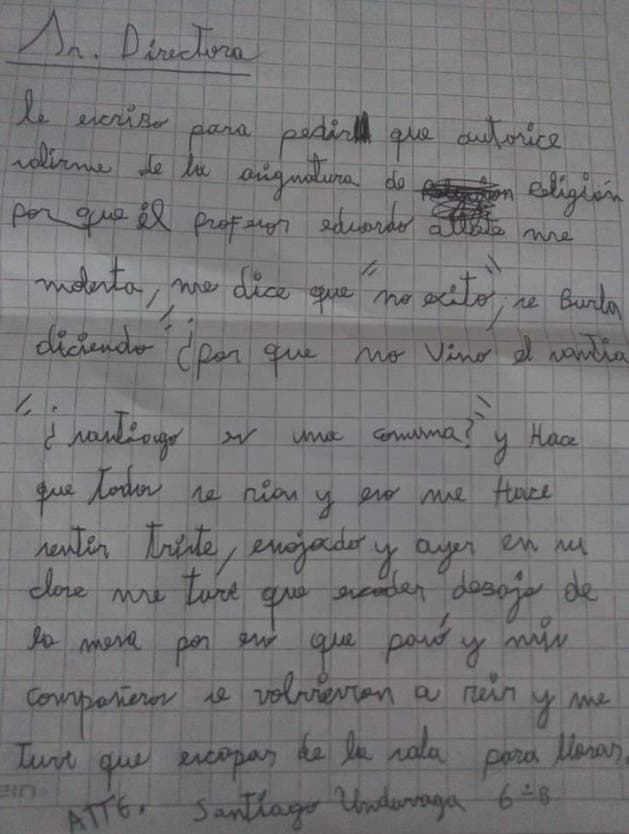 Sr. Directora
le escribo para pedir que autorice
salirme de la asignatura de religión
por que él profesor eduardo me
molesta, me dice que "no exito", se Burla
diciendo "¿por que no vino el santia
"¿santiago es una comuna?" y Hace
que todos se rian y eso me Hace
sentir triste, enojado y ayer en su
clase me tuve que escoder desajo de
la mesa por eso que pasó y mis
compañeros se volvieron a reir y me
tuve que escapar de la sala para llorar.
ATTE. Santiago Undurraga 6-B